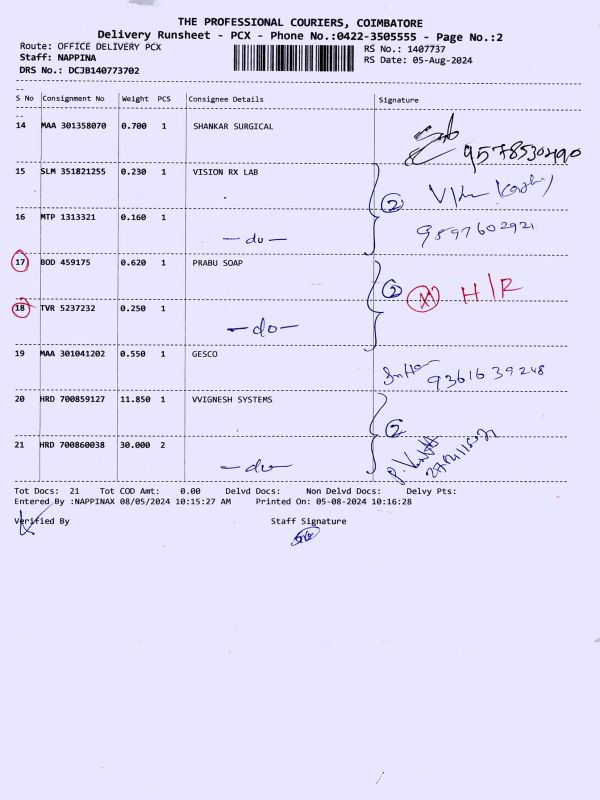 THE PROFESSIONAL COURIERS, COIMBATORE
Delivery Runsheet - PCX - Phone No.:0422-3505555 - Page No.:2
Route: OFFICE DELIVERY PCX RS No.: 1407737
Staff: NAPPINA RS Date: 05-Aug-2024
DRS No.: DCJB140773702
S No Consignment No Weight PCS Consignee Details Signature
14 MAA 301358070 0.700 1 SHANKAR SURGICAL
9578530490
15 SLM 351821255 0.230 1 VISION RX LAB
2
16 MTP 1313321 0.160 1 -do-
9597602921
17 BOD 459175 0.620 1 PRABU SOAP
2 H/R
18 TVR 5237232 0.250 1 -do-
19 MAA 301041202 0.550 1 GESCO
9361639248
20 HRD 700859127 11.850 1 VVIGNESH SYSTEMS
2
21 HRD 700860038 30.000 2 -do-
Tot Docs: 21 Tot COD Amt: 0.00 Delvd Docs: Non Delvd Docs: Delvy Pts:
Entered By :NAPPINAX 08/05/2024 10:15:27 AM Printed On: 05-08-2024 10:16:28
Verified By Staff Signature